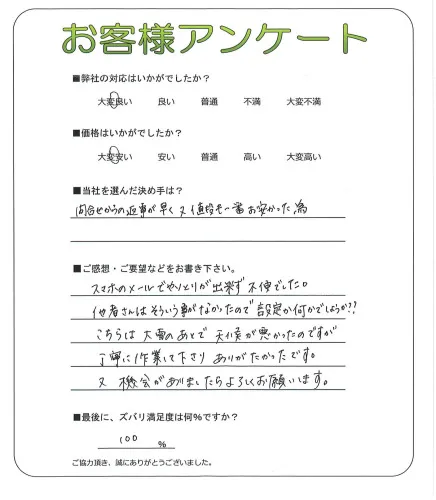 お客様アンケート
■弊社の対応はいかがでしたか?
大変良い 良い 普通 不満 大変不満
■価格はいかがでしたか?
大変安い 安い 普通 高い 大変高い
■当社を選んだ決め手は?
問合せからの返事が早く 又値段も一番お安かった為
■ご感想・ご要望などをお書き下さい。
スマホのメールでやりとりが出来ず不便でした。
他者さんはそういう事がなかったので設定か何かでしょうか??
こちらは大雪のあとで天候が悪かったのですが
丁寧に作業して下さりありがたかったです。
又機会がありましたらよろしくお願いします。
■最後に、ズバリ満足度は何%ですか?
100 %
ご協力頂き、誠にありがとうございました。